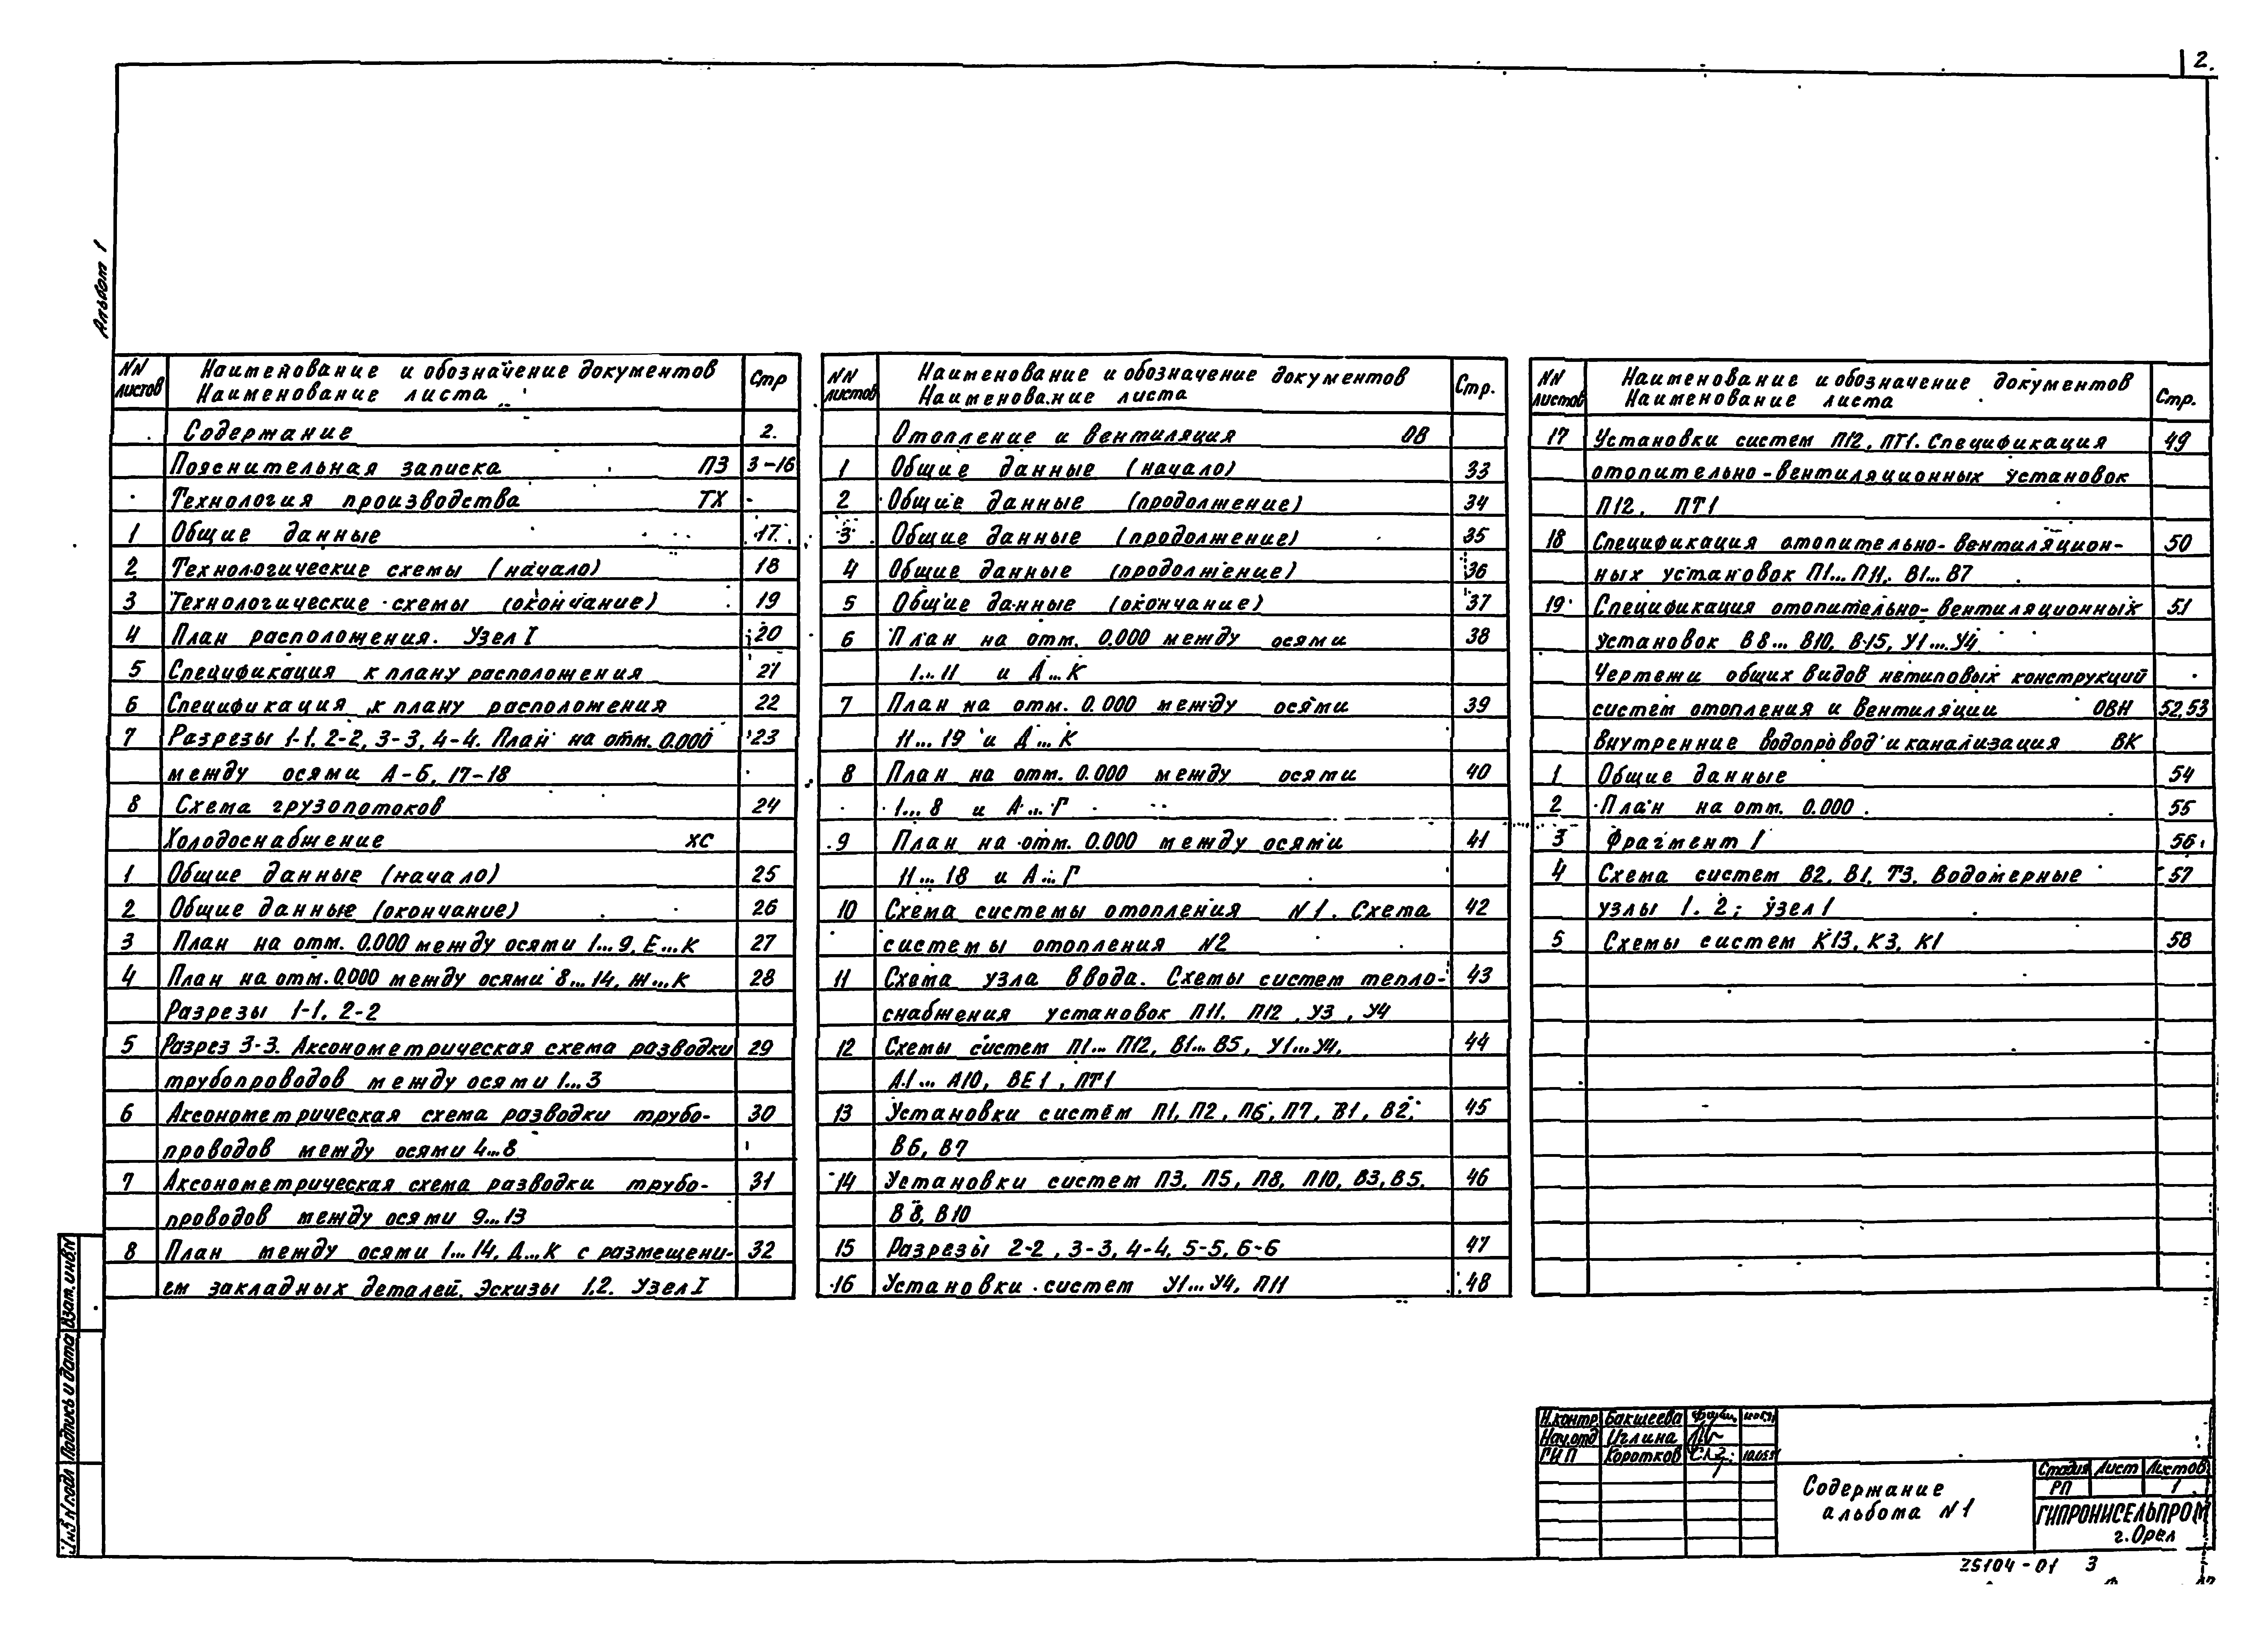 2.
Альбом 1
NN листов Наименование и обозначение документов Наименование листа Стр
Содержание 2.
Пояснительная записка ПЗ 3-16
Технология производства ТХ
1 Общие данные 17
2 Технологические схемы (начало) 18
3 Технологические схемы (окончание) 19
4 План расположения. Узел I 20
5 Спецификация к плану расположения 21
6 Спецификация к плану расположения 22
7 Разрезы 1-1, 2-2, 3-3, 4-4. План на отм. 0.000 23
между осями А-Б, 17-18
8 Схема грузопотоков 24
Холодоснабжение ХС
1 Общие данные (начало) 25
2 Общие данные (окончание) 26
3 План на отм. 0.000 между осями 1...9, Е...К 27
4 План на отм. 0.000 между осями 8...14, Ж...К 28
Разрезы 1-1, 2-2
5 Разрез 3-3. Аксонометрическая схема разводки 29
трубопроводов между осями 1...3
6 Аксонометрическая схема разводки трубо- 30
проводов между осями 4...8
7 Аксонометрическая схема разводки трубо- 31
проводов между осями 9...13
8 План между осями 1...14, Д...К с размещени- 32
ем закладных деталей. Эскизы 1,2. Узел I
NN листов Наименование и обозначение документов Наименование листа Стр.
Отопление и вентиляция ОВ
1 Общие данные (начало) 33
2 Общие данные (продолжение) 34
3 Общие данные (продолжение) 35
4 Общие данные (продолжение) 36
5 Общие данные (окончание) 37
6 План на отм. 0.000 между осями 38
1...11 и Д...К
7 План на отм. 0.000 между осями 39
11...19 и Д...К
8 План на отм. 0.000 между осями 40
1...8 и А...Г
9 План на отм. 0.000 между осями 41
11...18 и А...Г
10 Схема системы отопления N1. Схема 42
системы отопления N2
11 Схема узла ввода. Схемы систем тепло- 43
снабжения установок П11, П12, У3, У4
12 Схемы систем П1...П12, В1...В5, У1...У4, 44
А1...А10, ВЕ1, ПТ1
13 Установки систем П1, П2, П6, П7, В1, В2, 45
В6, В7
14 Установки систем П3, П5, П8, П10, В3, В5, 46
В8, В10
15 Разрезы 2-2, 3-3, 4-4, 5-5, 6-6 47
16 Установки систем У1...У4, П11 48
NN листов Наименование и обозначение документов Наименование листа Стр.
17 Установки систем П12, ПТ1. Спецификация 49
отопительно-вентиляционных установок
П12, ПТ1
18 Спецификация отопительно-вентиляцион- 50
ных установок П1...П11, В1...В7
19 Спецификация отопительно-вентиляционных 51
установок В8...В10, В15, У1...У4
Чертежи общих видов нетиповых конструкций
систем отопления и вентиляции ОВН 52,53
Внутренние водопровод и канализация ВК
1 Общие данные 54
2 План на отм. 0.000 55
3 Фрагмент 1 56
4 Схема систем В2, В1, Т3. Водомерные 57
узлы 1. 2; узел 1
5 Схемы систем К13, К3, К1 58
Взам. инв.N
Подпись и дата
Инв N подл
Н.контр. Бакшеева
Нач.отд Иглина
ГИП Коротков
Содержание
альбома N1
Стадия Лист Листов
РП 1
ГИПРОНИСЕЛЬПРОМ
г.Орел
25104-01 3